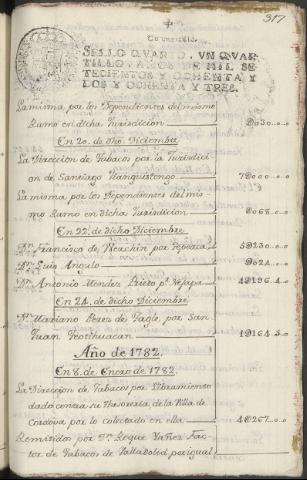 317
SELLO QVARTO, VN QVAR-
TILLO, AÑOS DE MIL SE-
TECIENTOS Y OCHENTA Y
DOS Y OCHENTA Y TRES.
La misma, por los Dependientes del mismo
Ramo en dicha Jurisdicion ___ D030...
En 20. de dho. Diciembre
La Direccion de Tabacos por la Jurisdici-
on de Santiago Tianguistongo ___ D000...
La misma por los Dependientes del mis-
mo Ramo en dicha Jurisdicion ___ D068...
En 22. de dicho Diciembre
Dn. Francisco de por ___ D230...
Dn. Luis Angulo ___ D624...
Dn. Antonio Mendez Prieto pr. Nejapa ___ 4D196.4
En 24. de dicho Diciembre
Dn. Mariano Perez de Tagle, por San
Juan Teotihuacan ___ 1D164.3
Año de 1782.
En 8. de Enero de 1782.
La Direccion de Tabacos por libramiento
dado contra su Thesoreria de la Villa de
Cordova por lo colectado en ella ___ 4D267...
Remitidos por Dn. Roque Yañez Fac-
tor de Tabacos de Valladolid, por igual